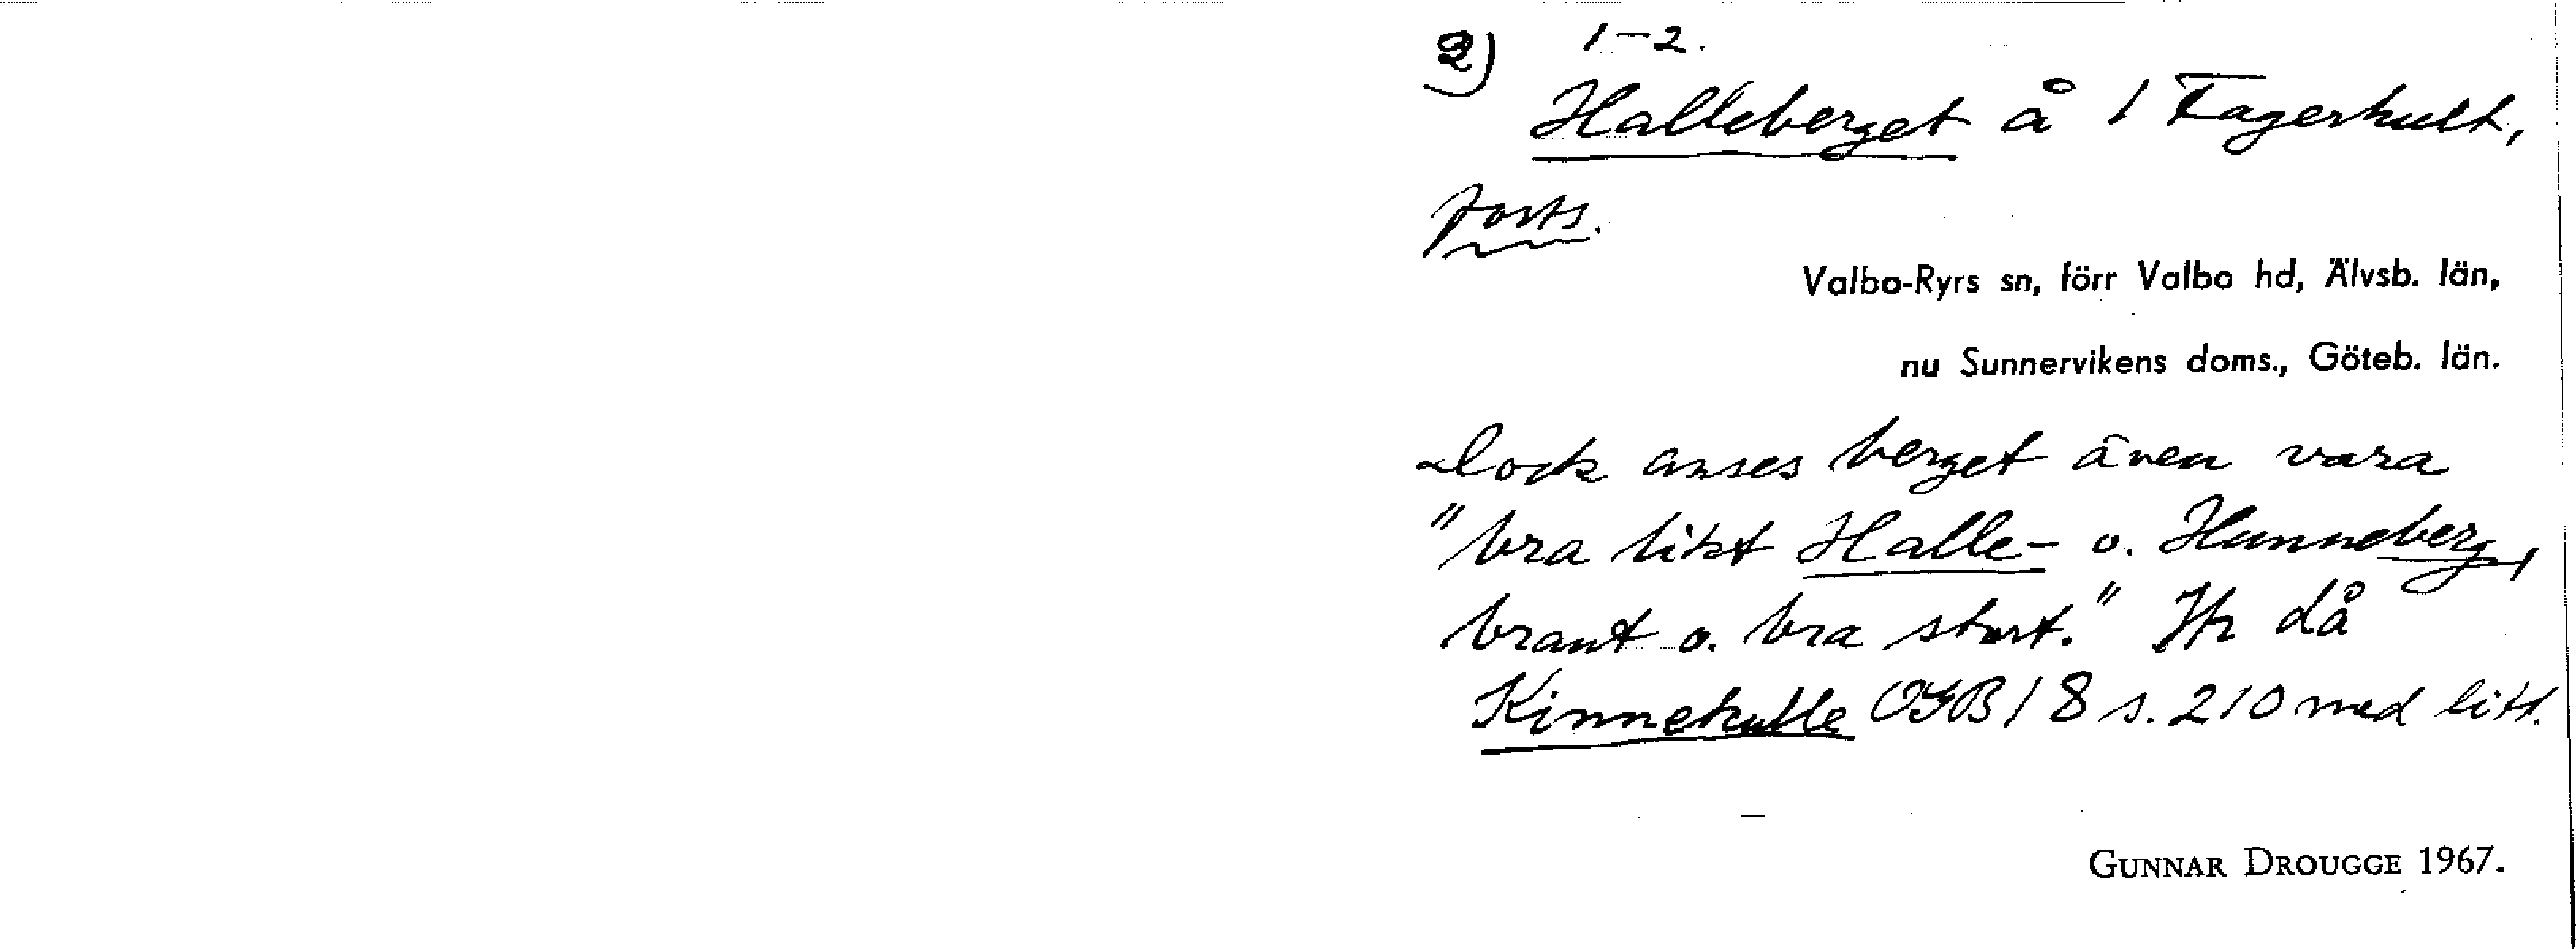 2) 1-2.
Halleberget å 1 Fagerhult,
forts.
Valbo-Ryrs sn, förr Valbo hd, Älvsb. län,
nu Sunnervikens doms., Göteb. län.
dock anses berget även vara
"bra likt Halle- o. Hunneberg,
brant o. bra stort." Jfr då
Kinnekulle OGB 18 s. 210 med litt.
GUNNAR DROUGGE 1967.